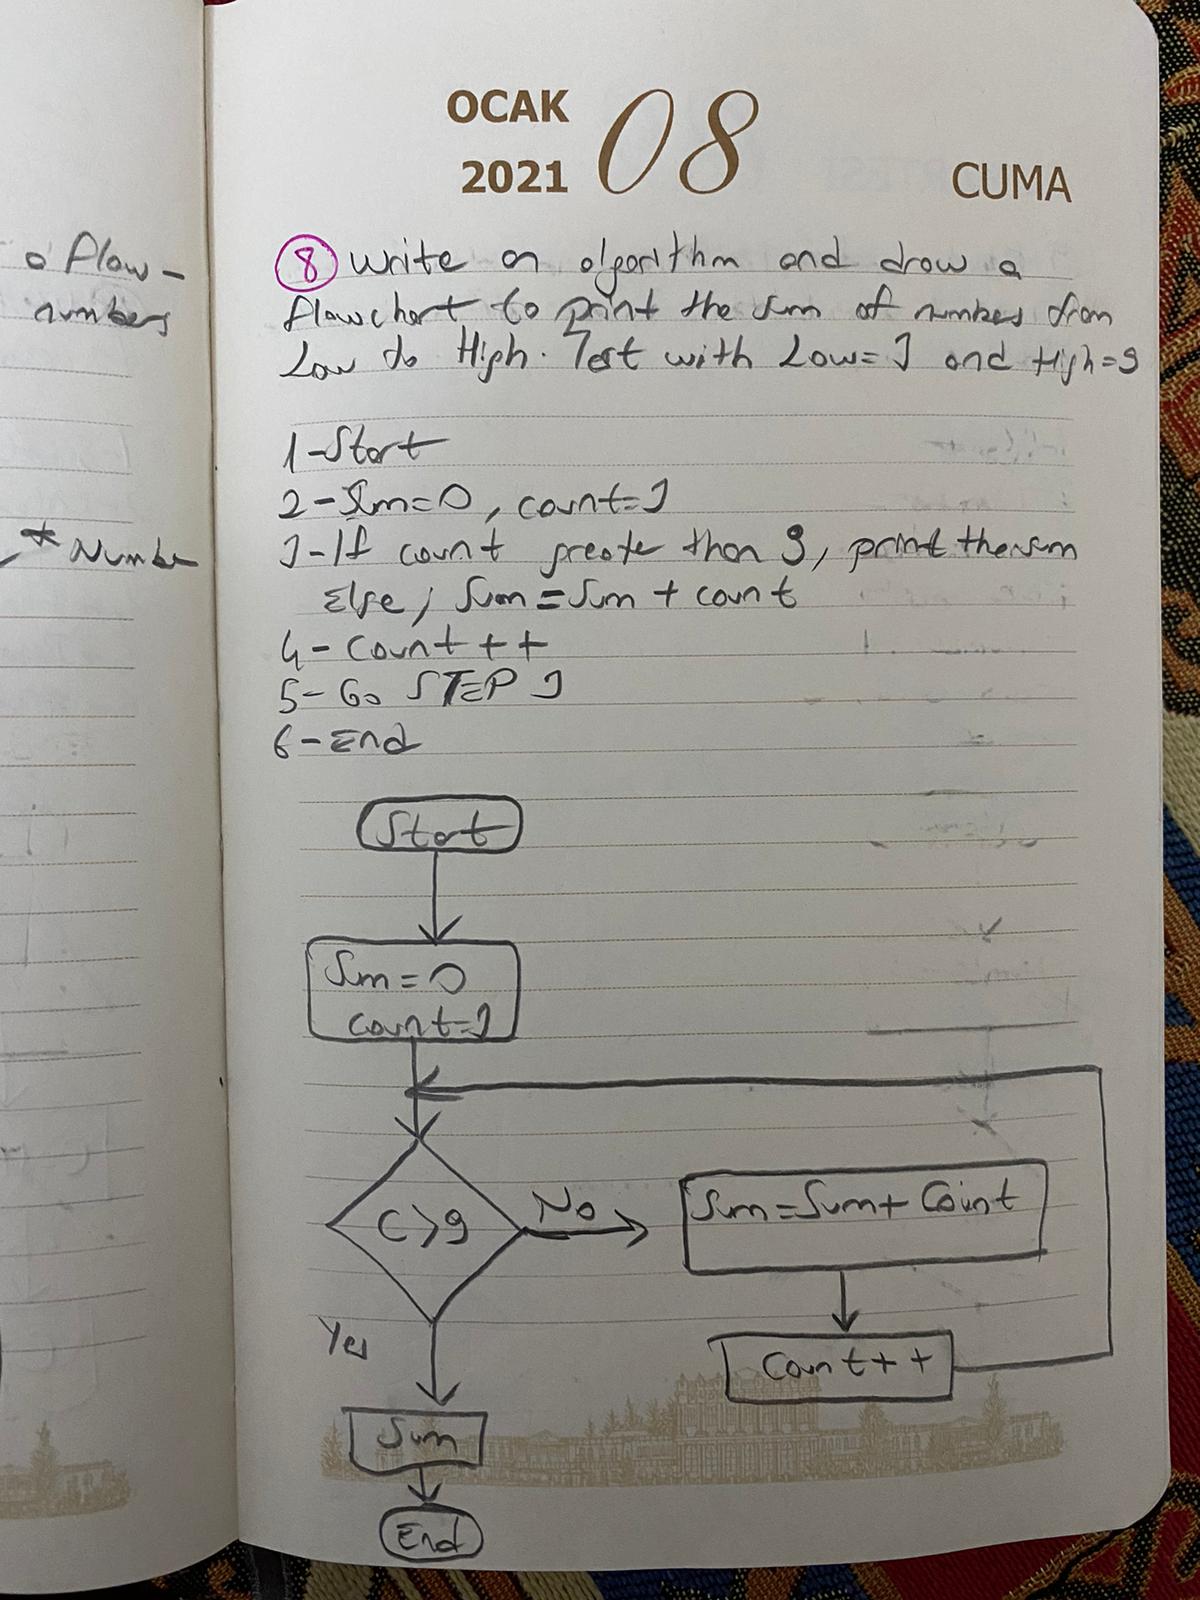 a flow-
numbers
* Number
OCAK 08
2021
CUMA
8 Write an algorithm and draw a
flowchart to print the sum of numbers from
Low to High. Test with Low=3 and High=9
1-Start
2-Sum=0, count=3
3-If count greate than 9, print the sum
Else; Sum=Sum + count
4-Count++
5-Go STEP 3
6-End
Start
Sum=0
count=3
C>9
No
Sum=Sum+Count
Yes
Count++
Sum
End